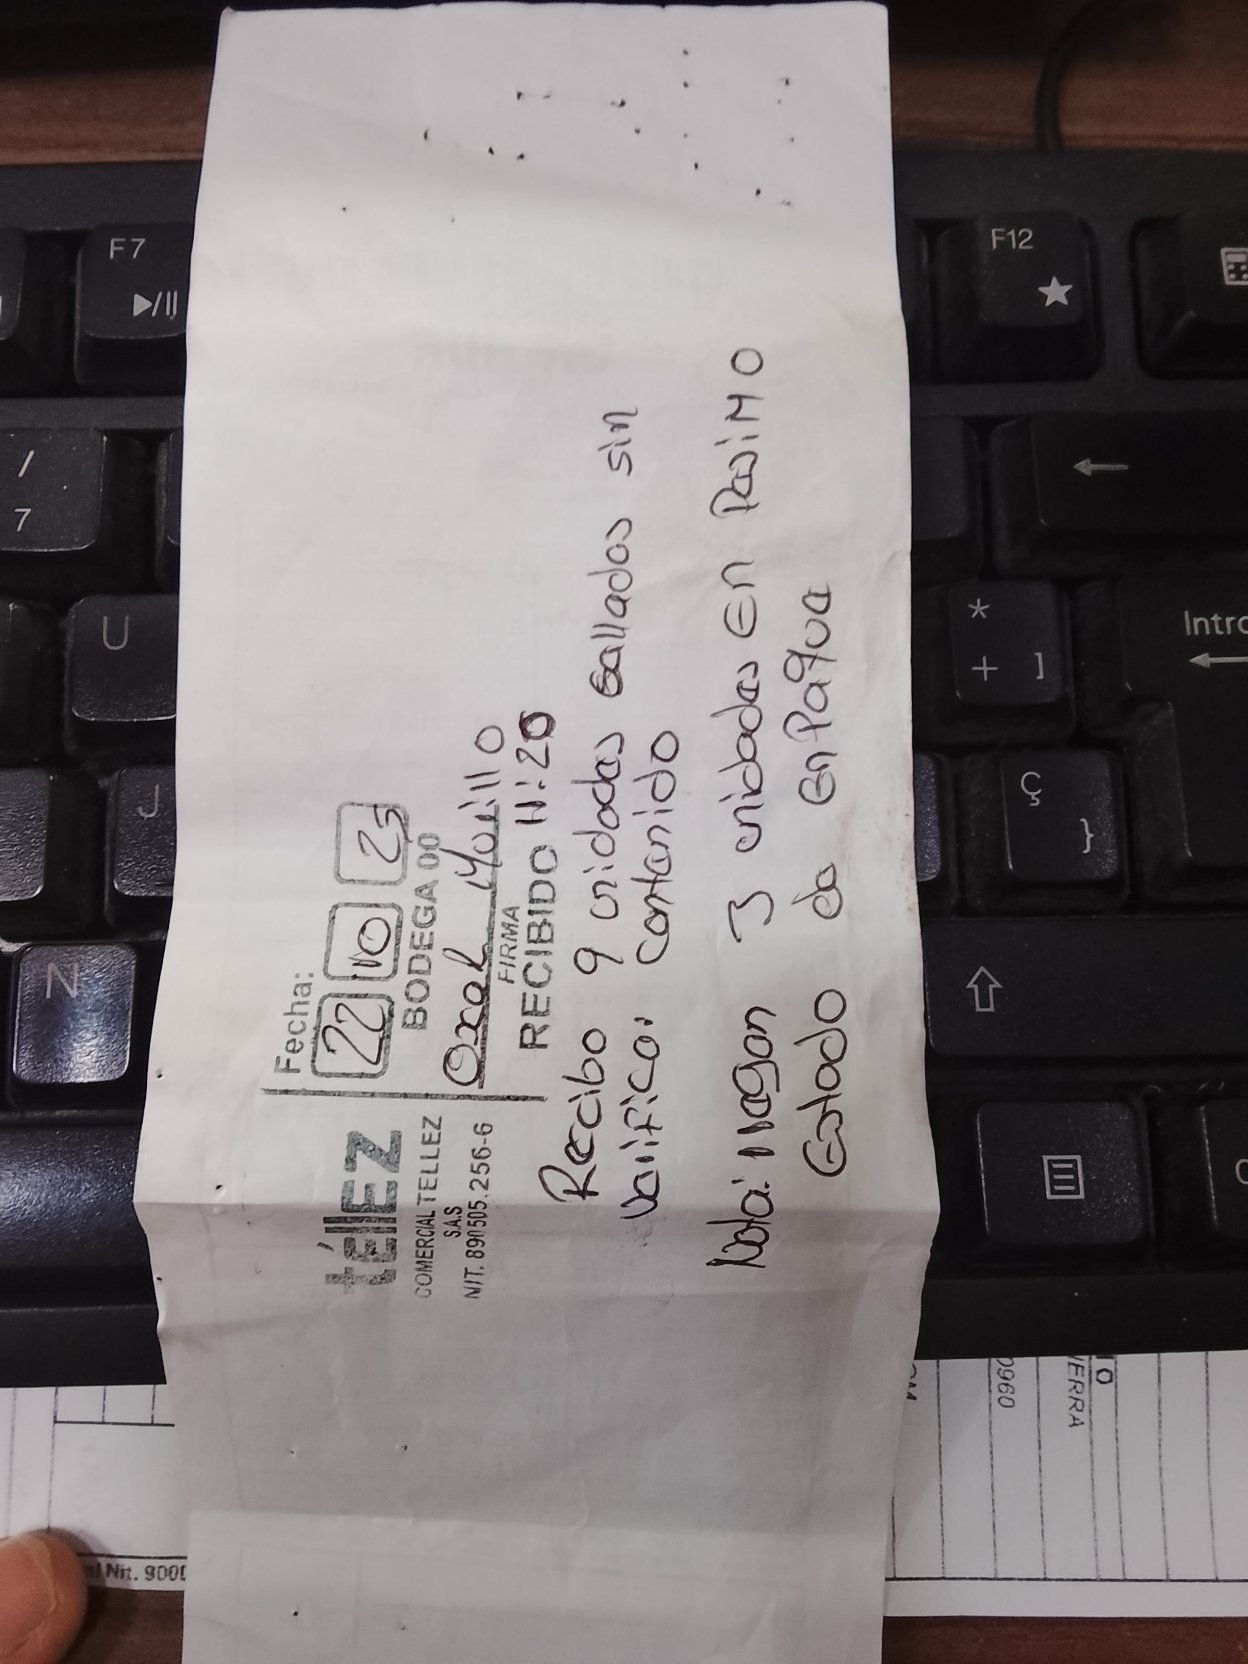 téllEZ
COMERCIAL TELLEZ
S.A.S
NIT. 890505.256-6
Fecha:
22 10 25
BODEGA 00
Oxal Murillo
FIRMA
RECIBIDO 11:20
Recibo 9 unidades sallados sin
Verificar contenido
Nota: llegan 3 unidades En PesiMO
Estado de EnPaque
F7
F12
/
7
U
J
N
*
+ ]
Ç
}
Intro
0960
IERRA
Nit. 900